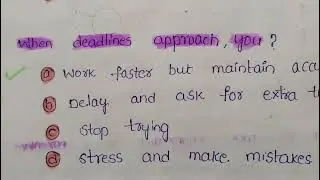 When deadlines approach, you?
a work faster but maintain acc
b Delay and ask for extra t
c stop trying
d stress and make mistakes